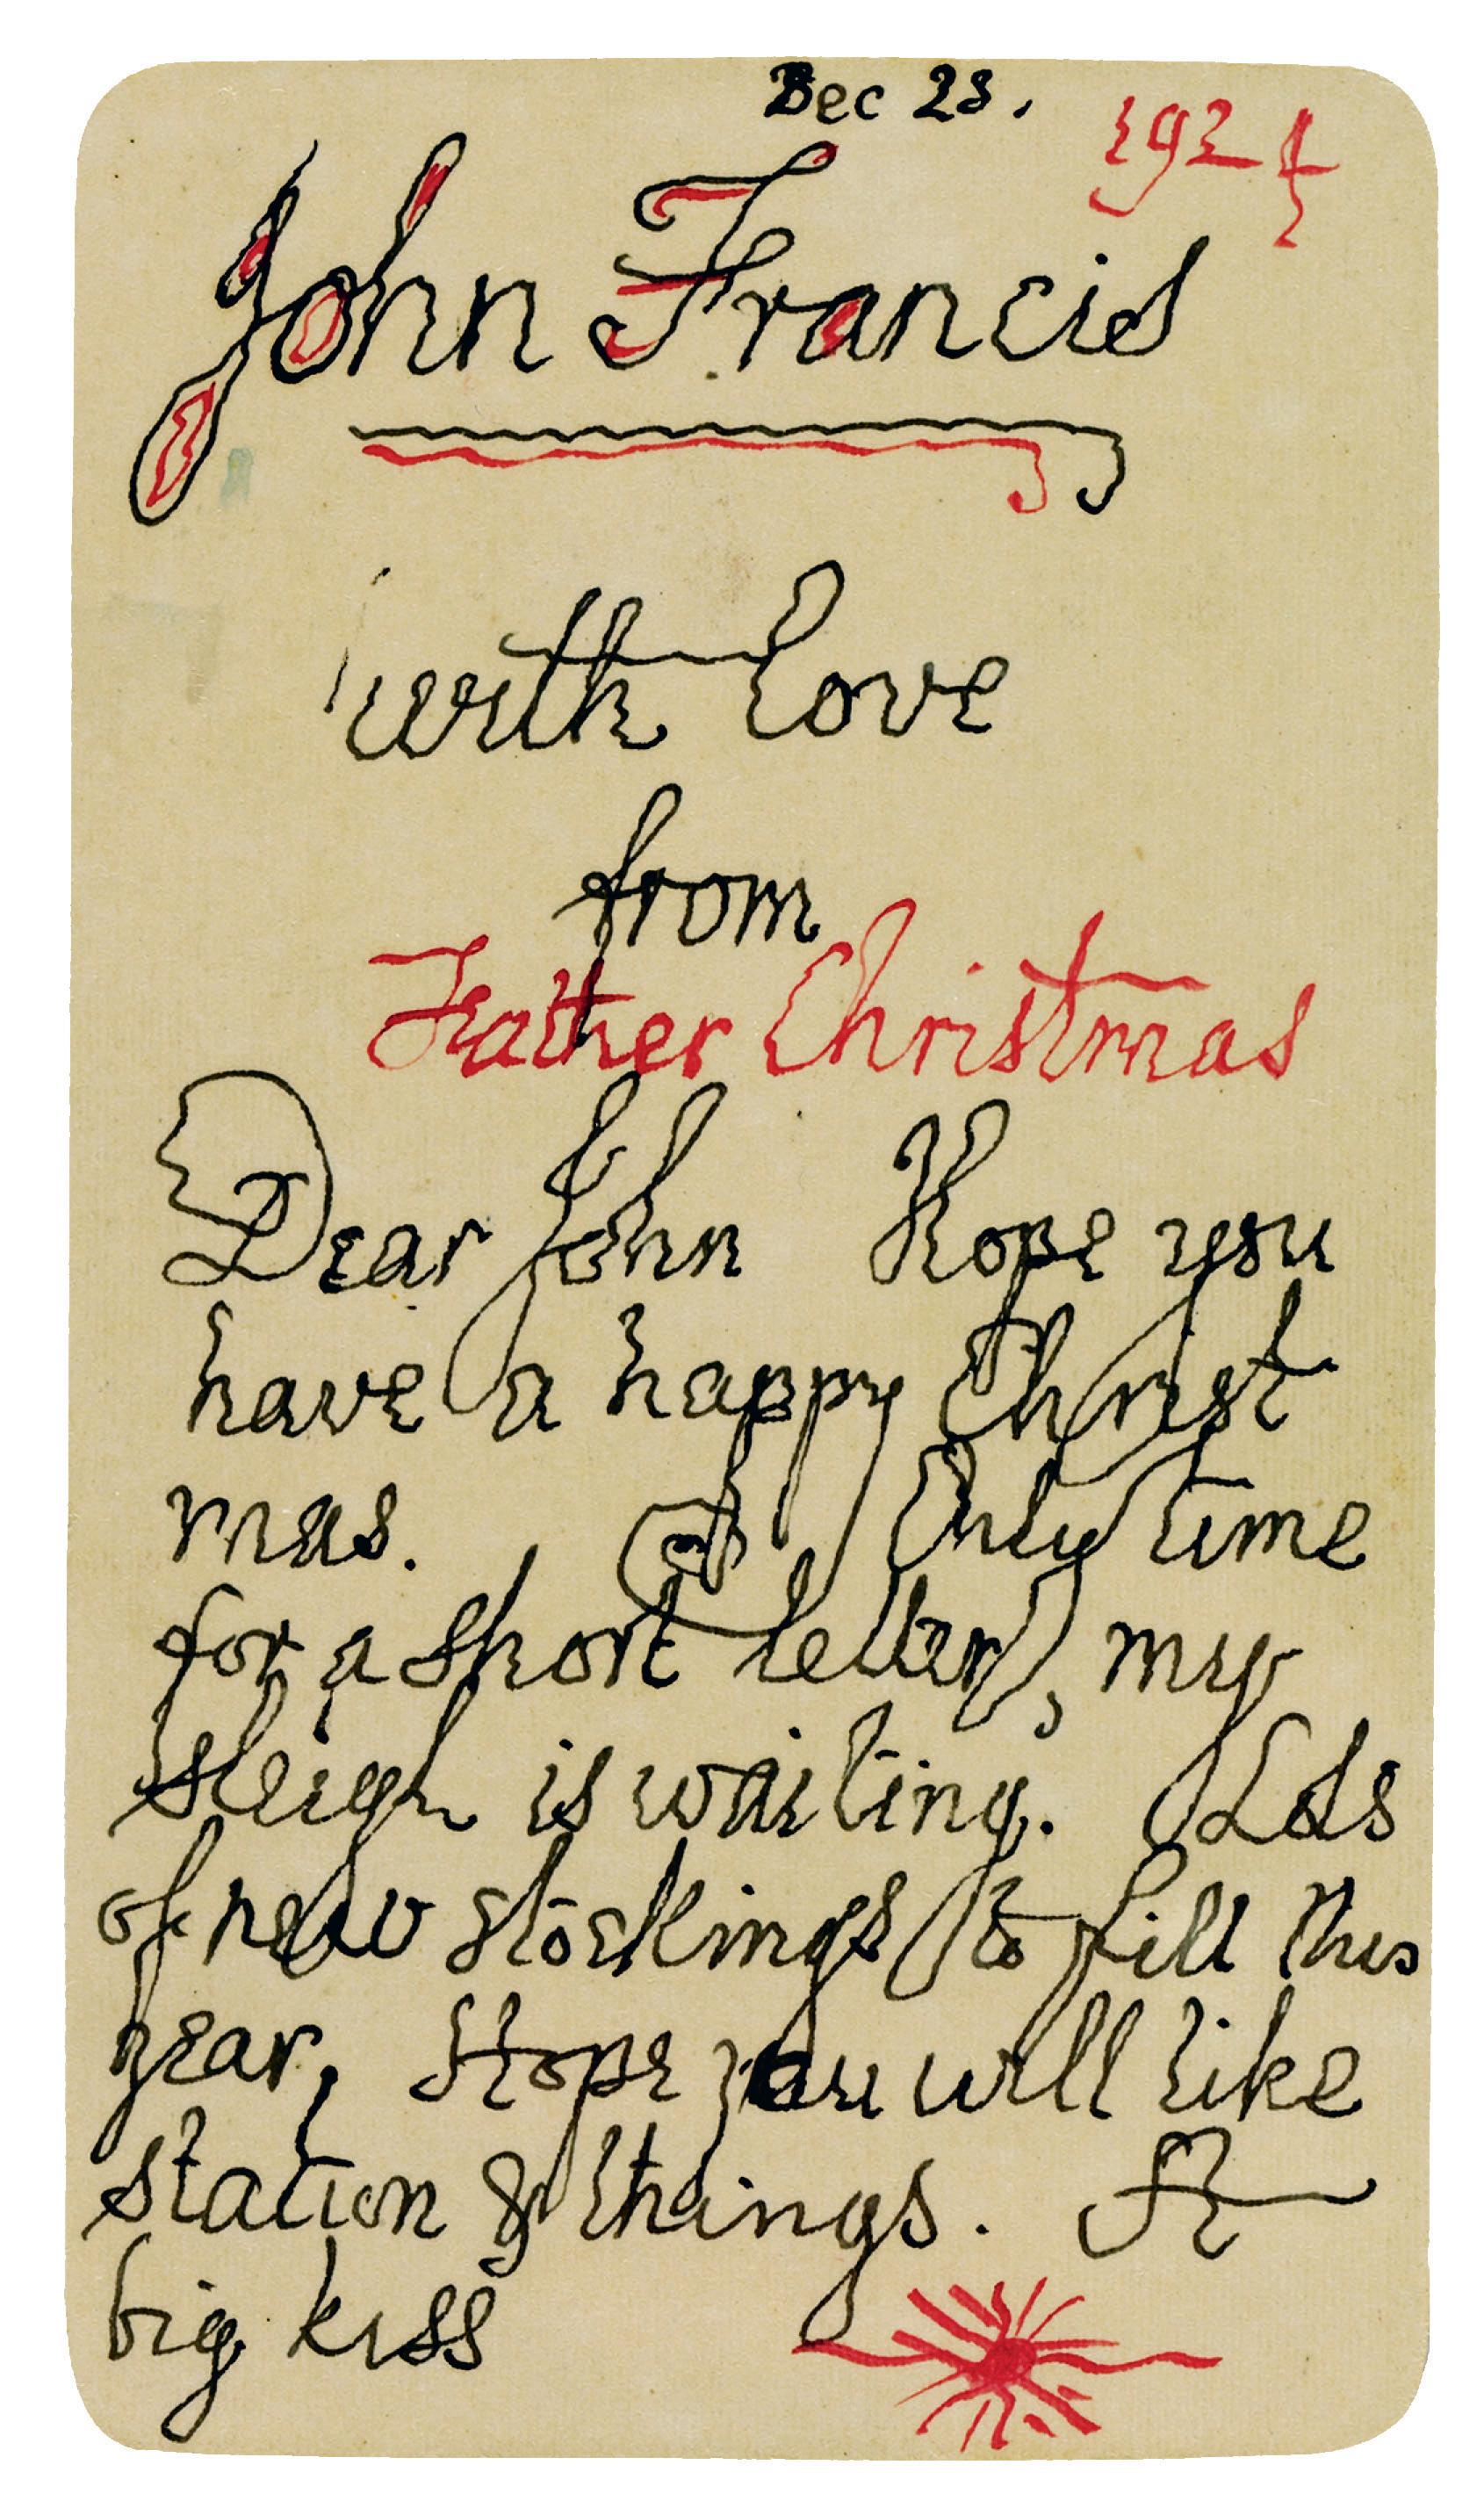 Dec 23. 1924
John Francis
with love
from
Father Christmas
Dear John Hope you
have a happy Christ
mas. Only time
for a short letter, my
sleigh is waiting. Lots
of new stockings to fill this
year. Hope you will like
station & things. A
big kiss